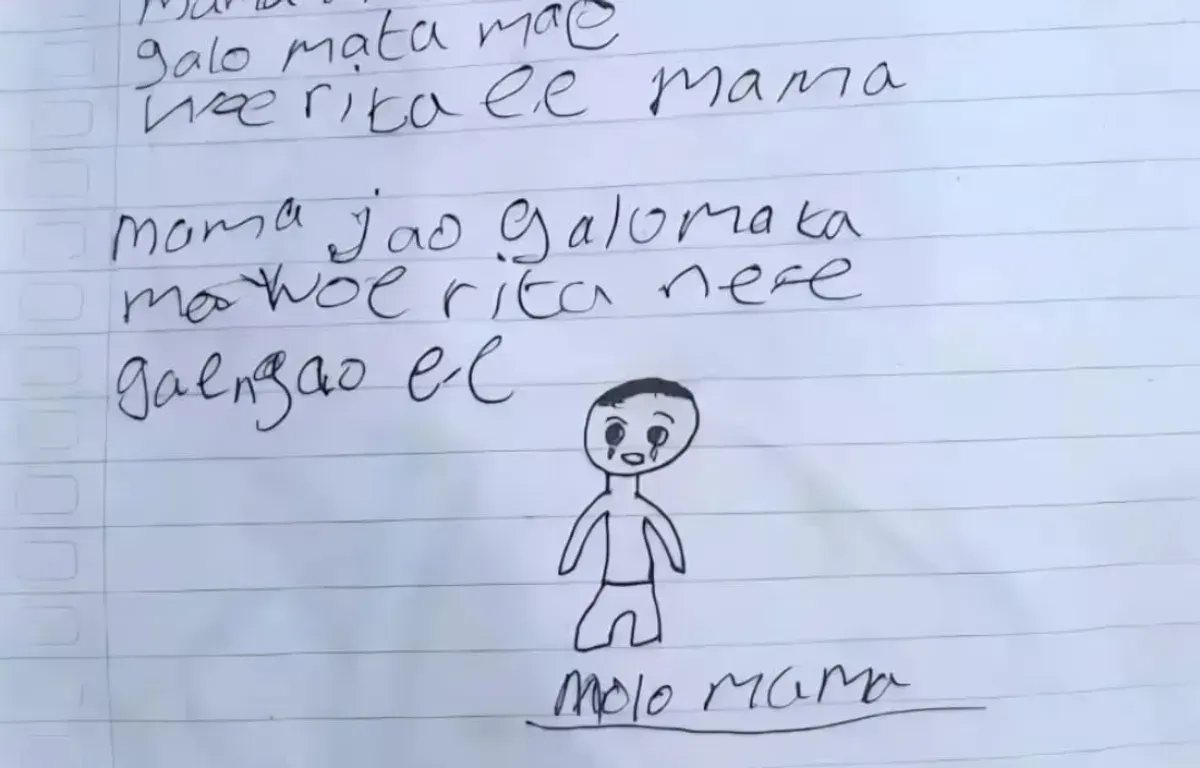 galo mata mae
woe rita ee mama
mama jao galo mata
mae woe rita ne'e
gae ngao ee
molo mama